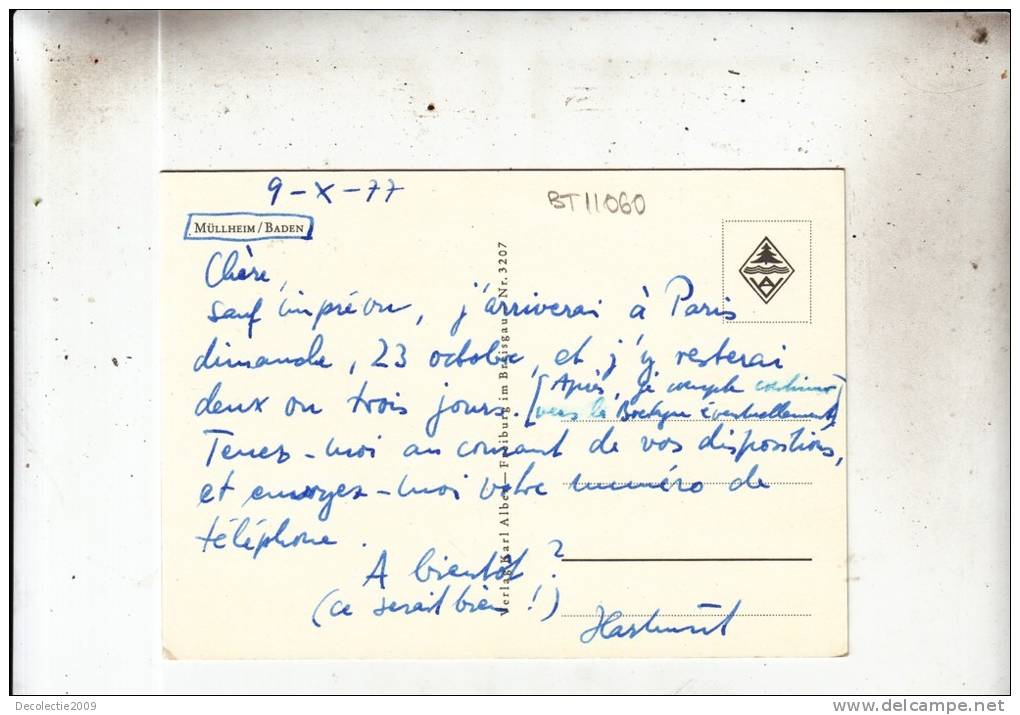 9-X-77
BT11060
MÜLLHEIM/BADEN
Chère,
sauf imprévu, j'arriverai à Paris
dimanche, 23 octobre, et j'y resterai
deux ou trois jours. [Après, je compte continuer
vers la Bretagne éventuellement]
Tenez-moi au courant de vos dispositions,
et envoyez-moi votre numéro de
téléphone.
A bientôt ?
(ce serait bien !)
Verlag Karl Albert — Freiburg im Breisgau Nr. 3207
Decolectie2009
www.delcampe.net